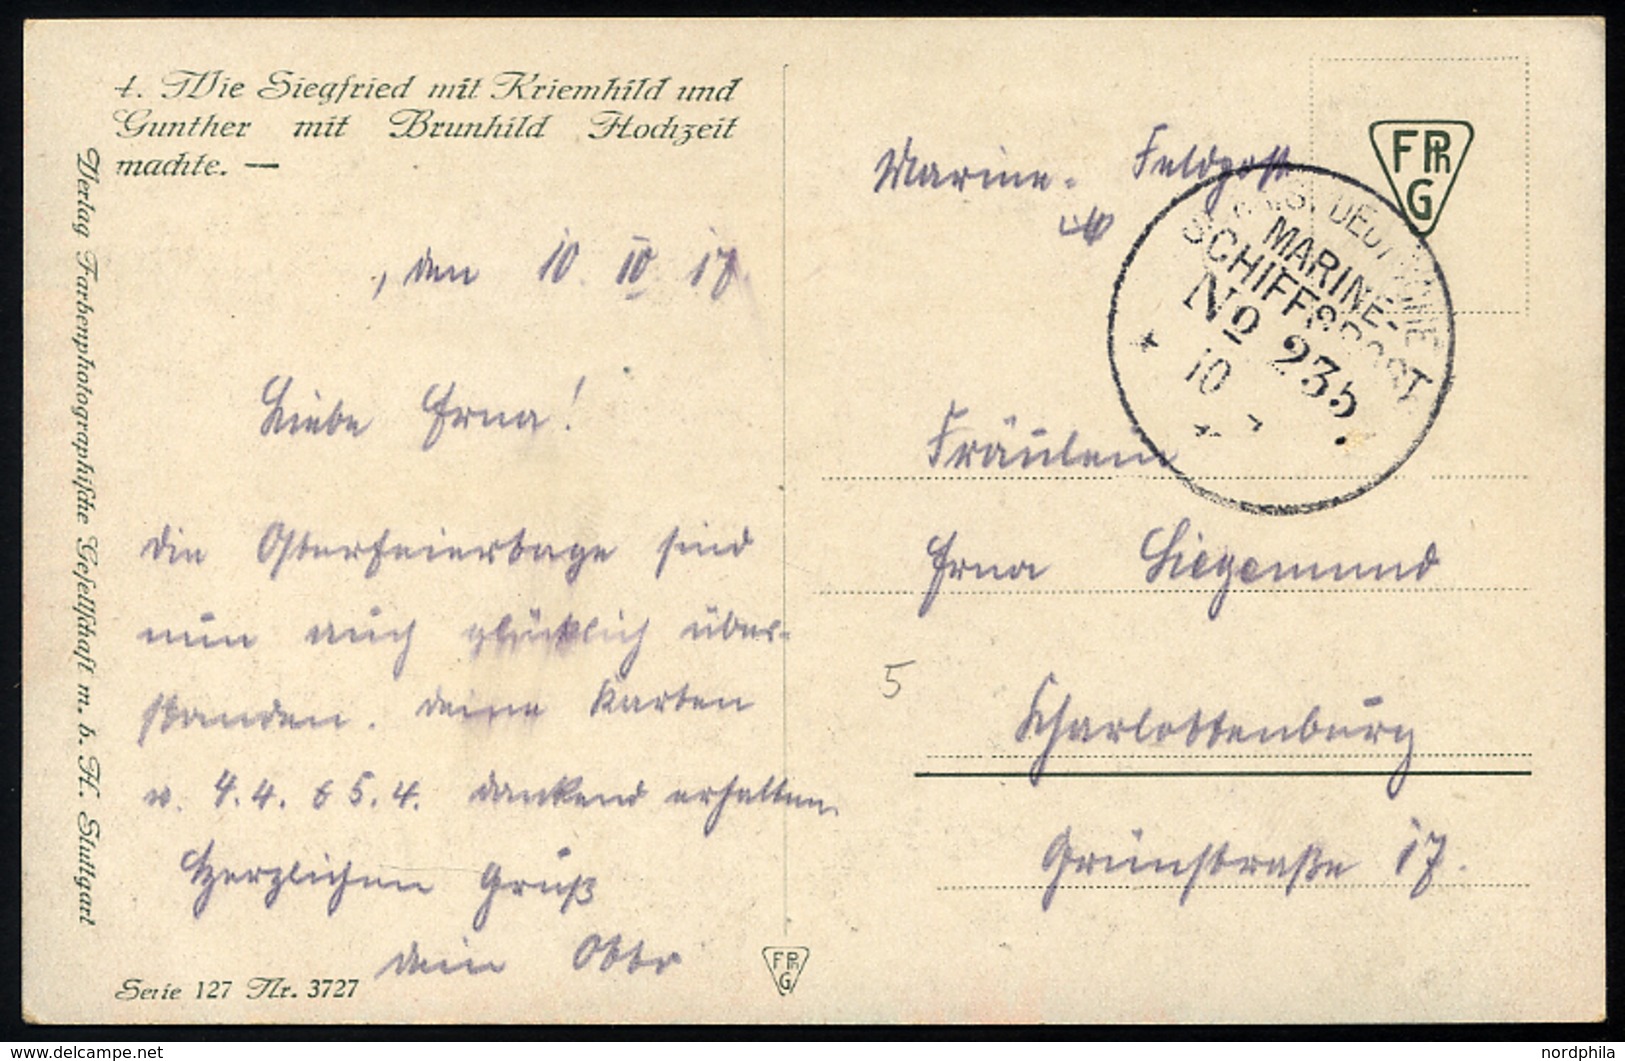 4. Wie Siegfried mit Kriemhild und
Gunther mit Brunhild Hochzeit
machte. —
Verlag Farbenphotographische Gesellschaft m. b. H. Stuttgart
, den 10. IV. 17.
Liebe Erna!
die Osterfeiertage sind
nun auch glücklich über-
standen. Deine Karten
v. 4.4. & 5.4. dankend erhalten.
Herzlichen Gruß
dein Otto
Serie 127 Nr. 3727
FPh
G
FPh
G
Marine-Feldpost
MARINE-
SCHIFFSPOST
No 235
10
Fräulein
Erna Siegemund
5
Charlottenburg
Grünstraße 17.
nordphila